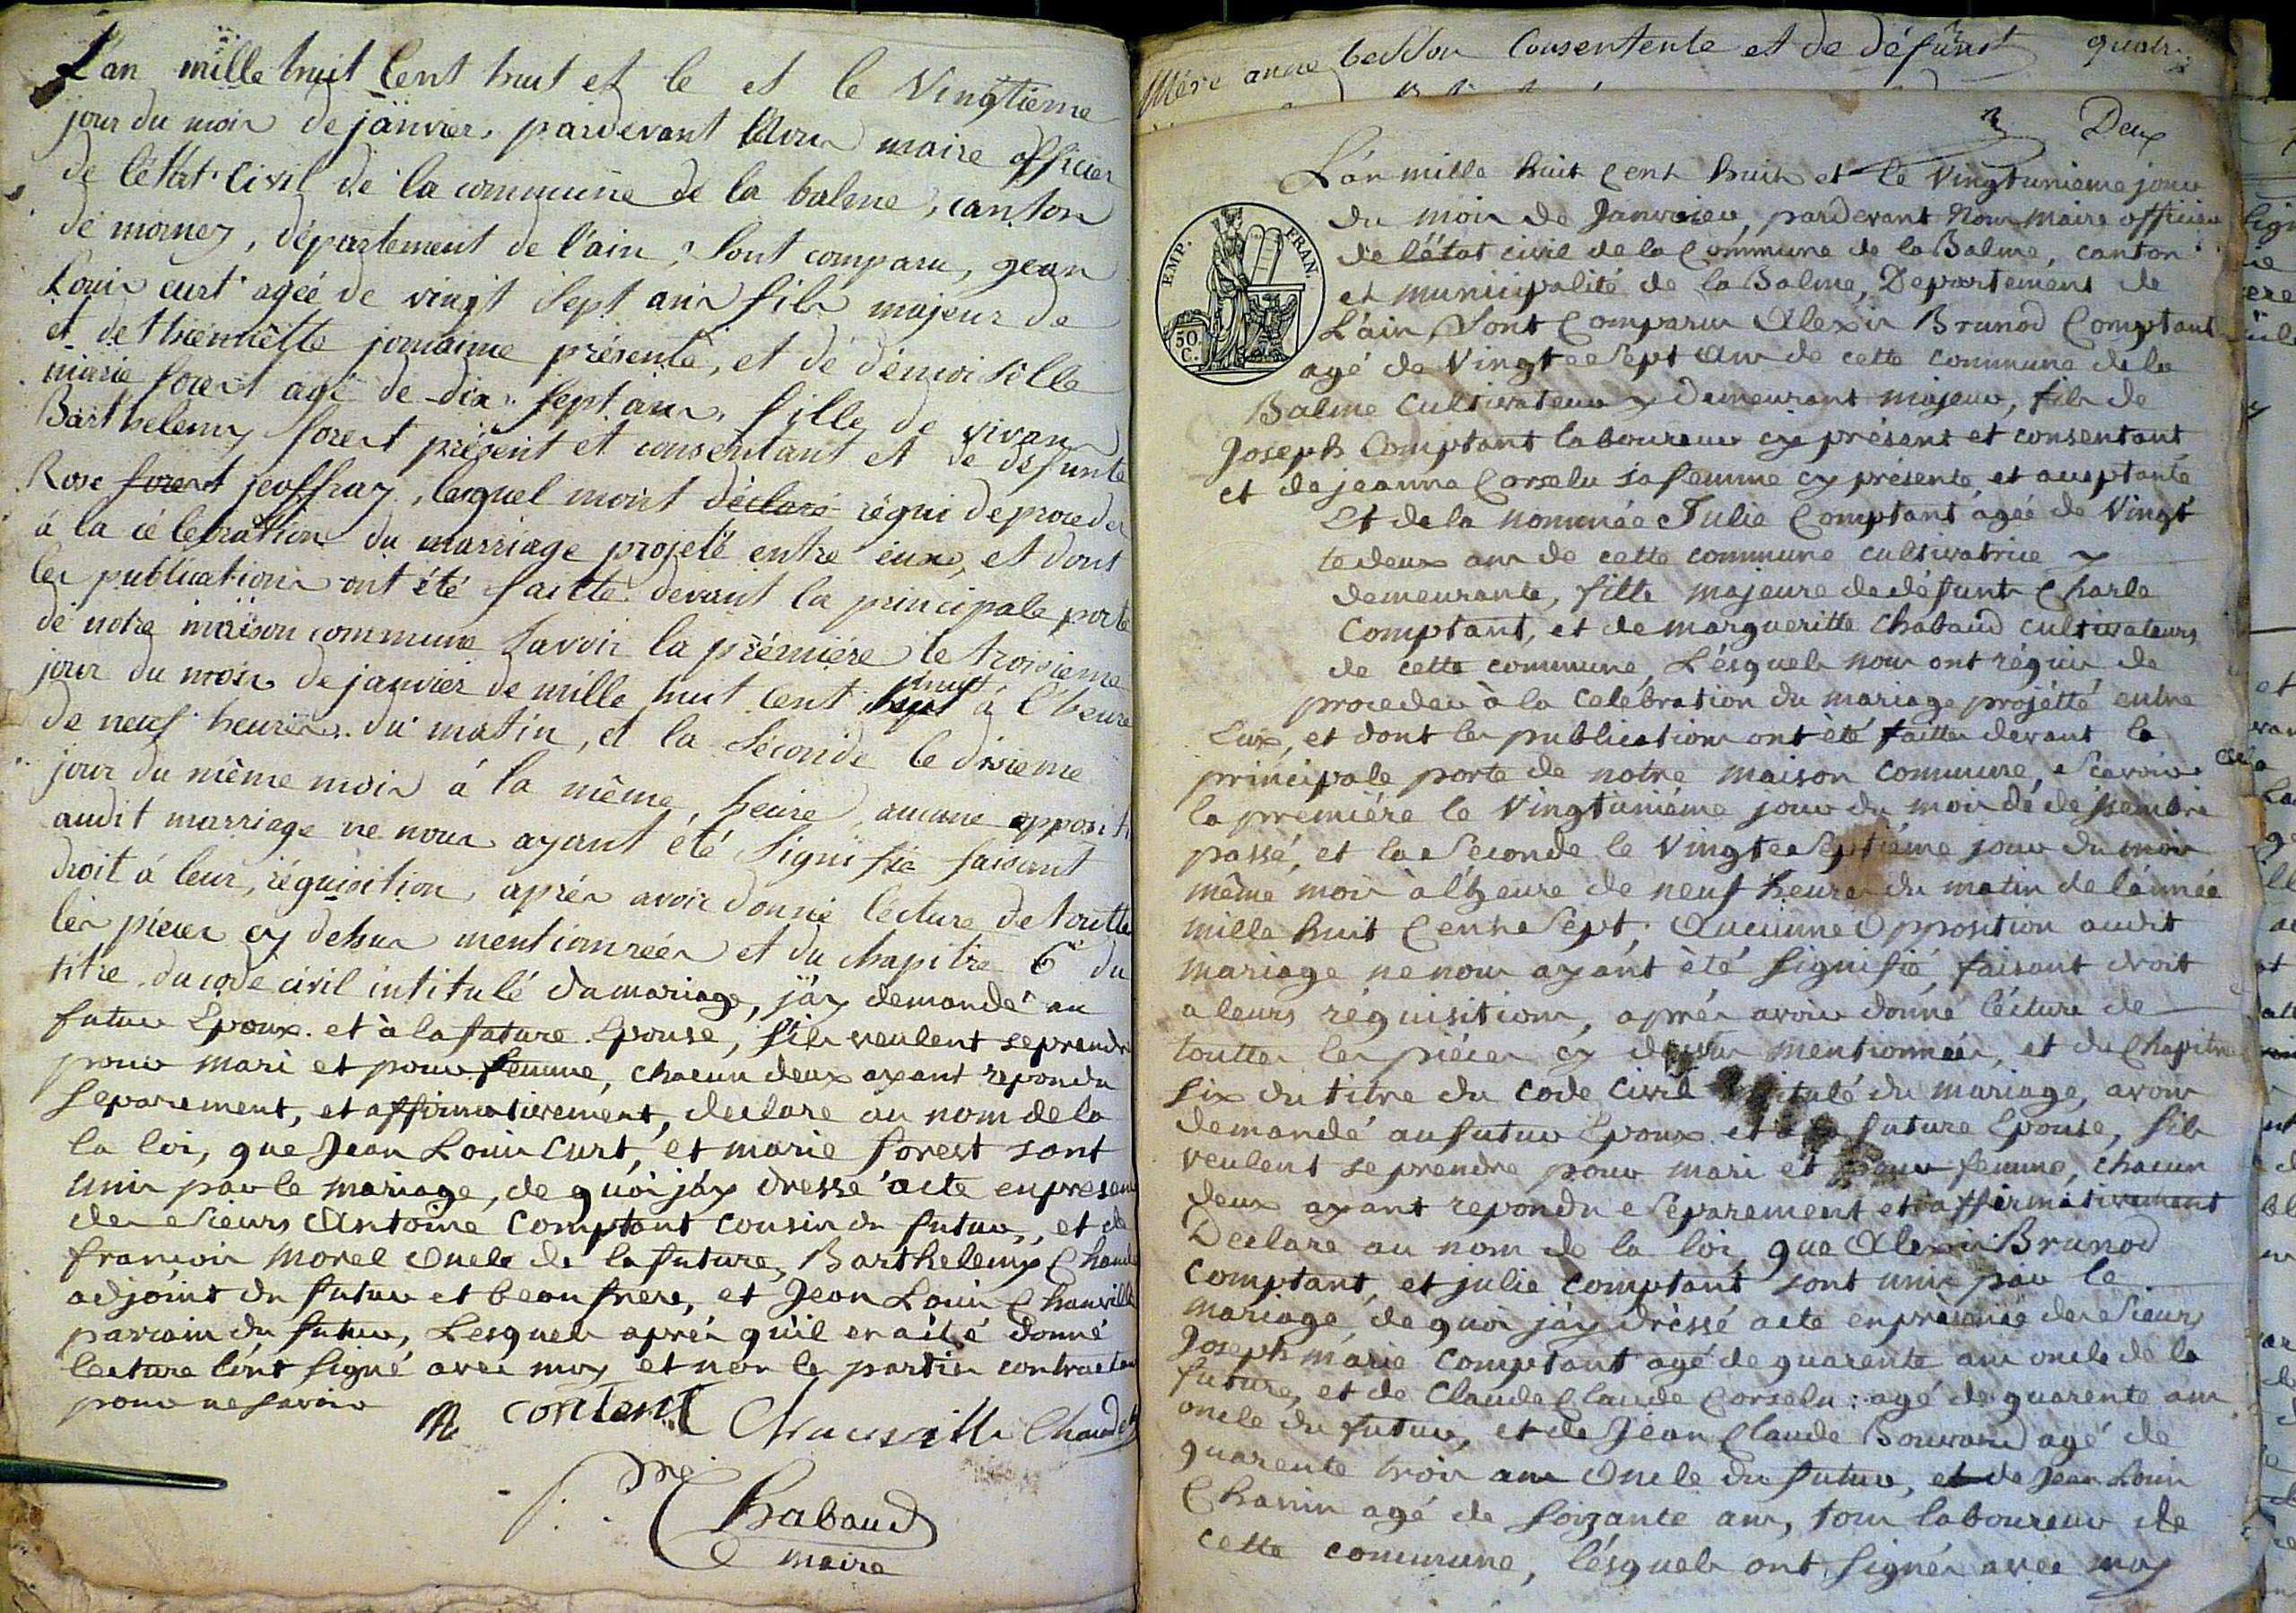 L'an mille huit Cent huit et le et le Vingtième
jour du mois de janvier, pardevant Nous maire officier
de l'état civil de la commune de la balme, canton
de mornay, département de l'ain, Sont comparu, jean
Louis curt agéé de vingt Sept ans fils majeur de
et de thiennette jomaine présente, et de démoiselle
marie forest agé de dix Sept ans, fille de vivan
Barthelemy forest présent et consentant et de défunte
Rose forest jeoffray, lesquel mont déclaré réqui de proceder
à la célébration du marriage projeté entre eux, et dont
les publications ont été faitte devant la principale porte
de notre maison commune Savoir la première le troisieme
jour du mois de janvier de mille huit Cent sept huit à l'heure
de neuf heures du matin, et la Séconde le dixieme
jour du même mois à la même heure, aucune opposit
audit marriage ne nous ayant été Signifié faisant
droit à leur réquisition, après avoir donné lecture de toutte
les pièces cy dessus mentionnées et du chapitre 6e du
titre du code civil intitulé du mariage, j'ay demandé au
futur Epoux et à la future Epouse, S'ils veulent se prendre
pour mari et pour femme, chacun deux ayant repondu
Séparement, et affirmativement, declare au nom de la
la loi, que Jean Louis Curt, et marie forest sont
unis par le mariage, de quoi j'ay dressé acte en presen
des Sieurs Antoine Comptant cousin du futur, et de
francois Morel Oncle de la future, Barthelemy Chaud
adjoint du futur et beau frere, et Jean Louis Chauville
parrain du futur, Lesquels après qu'il en a été donné
lecture l'ont Signé avec moy et non les parties contractan
pour ne savoir
content Chauville Chaudet
Chabaud
maire
Mére anne Consentente et de défunt quatr
Deux
L'an mille huit Cent huit et le Vingtunieme jour
du mois de Janvier, pardevant Nous maire officier
de l'état civil de la Commune de la Balme, canton
et municipalité de la Balme, Departement de
L'ain, Sont Comparus Alexis Brunod Comptant
agé de Vingt e Sept ans de cette commune de la
Balme Cultivateur y Demeurant majeur, fils de
Joseph Comptant laboureur cy présent et consentant
et de jeanne Corselu sa femme cy présente et aceptante
Et de la nommée Julie Comptant agée de Vingt
te deux ans de cette commune cultivatrice y
demeurante, fille majeure de défunt Charle
Comptant, et de margueritte Chabaud cultivateurs
de cette commune, Lésquels nous ont réquis de
proceder à la celebration du mariage projétté entre
Eux, et dont les publications ont été faitte devant la
principale porte de notre maison commune, Scavoir
la première le Vingtunième jour du mois dé désembre
passé, et la Seconde le Vingte Septième jour du mois
même mois à l'heure de neuf heures du matin de l'année
mille huit Cent Sept; Aucunne Opposition audit
mariage ne nous ayant été Signifié, faisant droit
a leurs réquisitions, aprés avoir donné lécture de
touttes les piéces cy dessus mentionnées, et du Chapitre
Six du titre du Code civil intitulé du mariage, avons
demandé au futur Epoux et à la future Epouse, S'ils
veulent se prendre pour mari et pour femme, chacun
deux ayant repondu Séparement et affirmativement
Declare au nom de la loi, que Alexis Brunod
Comptant, et julie Comptant sont unis par le
mariage, de quoi j'ay dréssé acte en présence des Sieurs
Joseph marie Comptant agé de quarente ans oncle de la
future, et de Claude Claude Corselu: agé de quarente ans
oncle du futur, et de Jean Claude Bouvard agé de
quarente trois ans Oncle du futur, et de Jean Louis
Chanin agé de Soizante ans, tous laboureur de
cette commune, lésquels ont Signés avec moy
EMP. FRAN.
50 C.